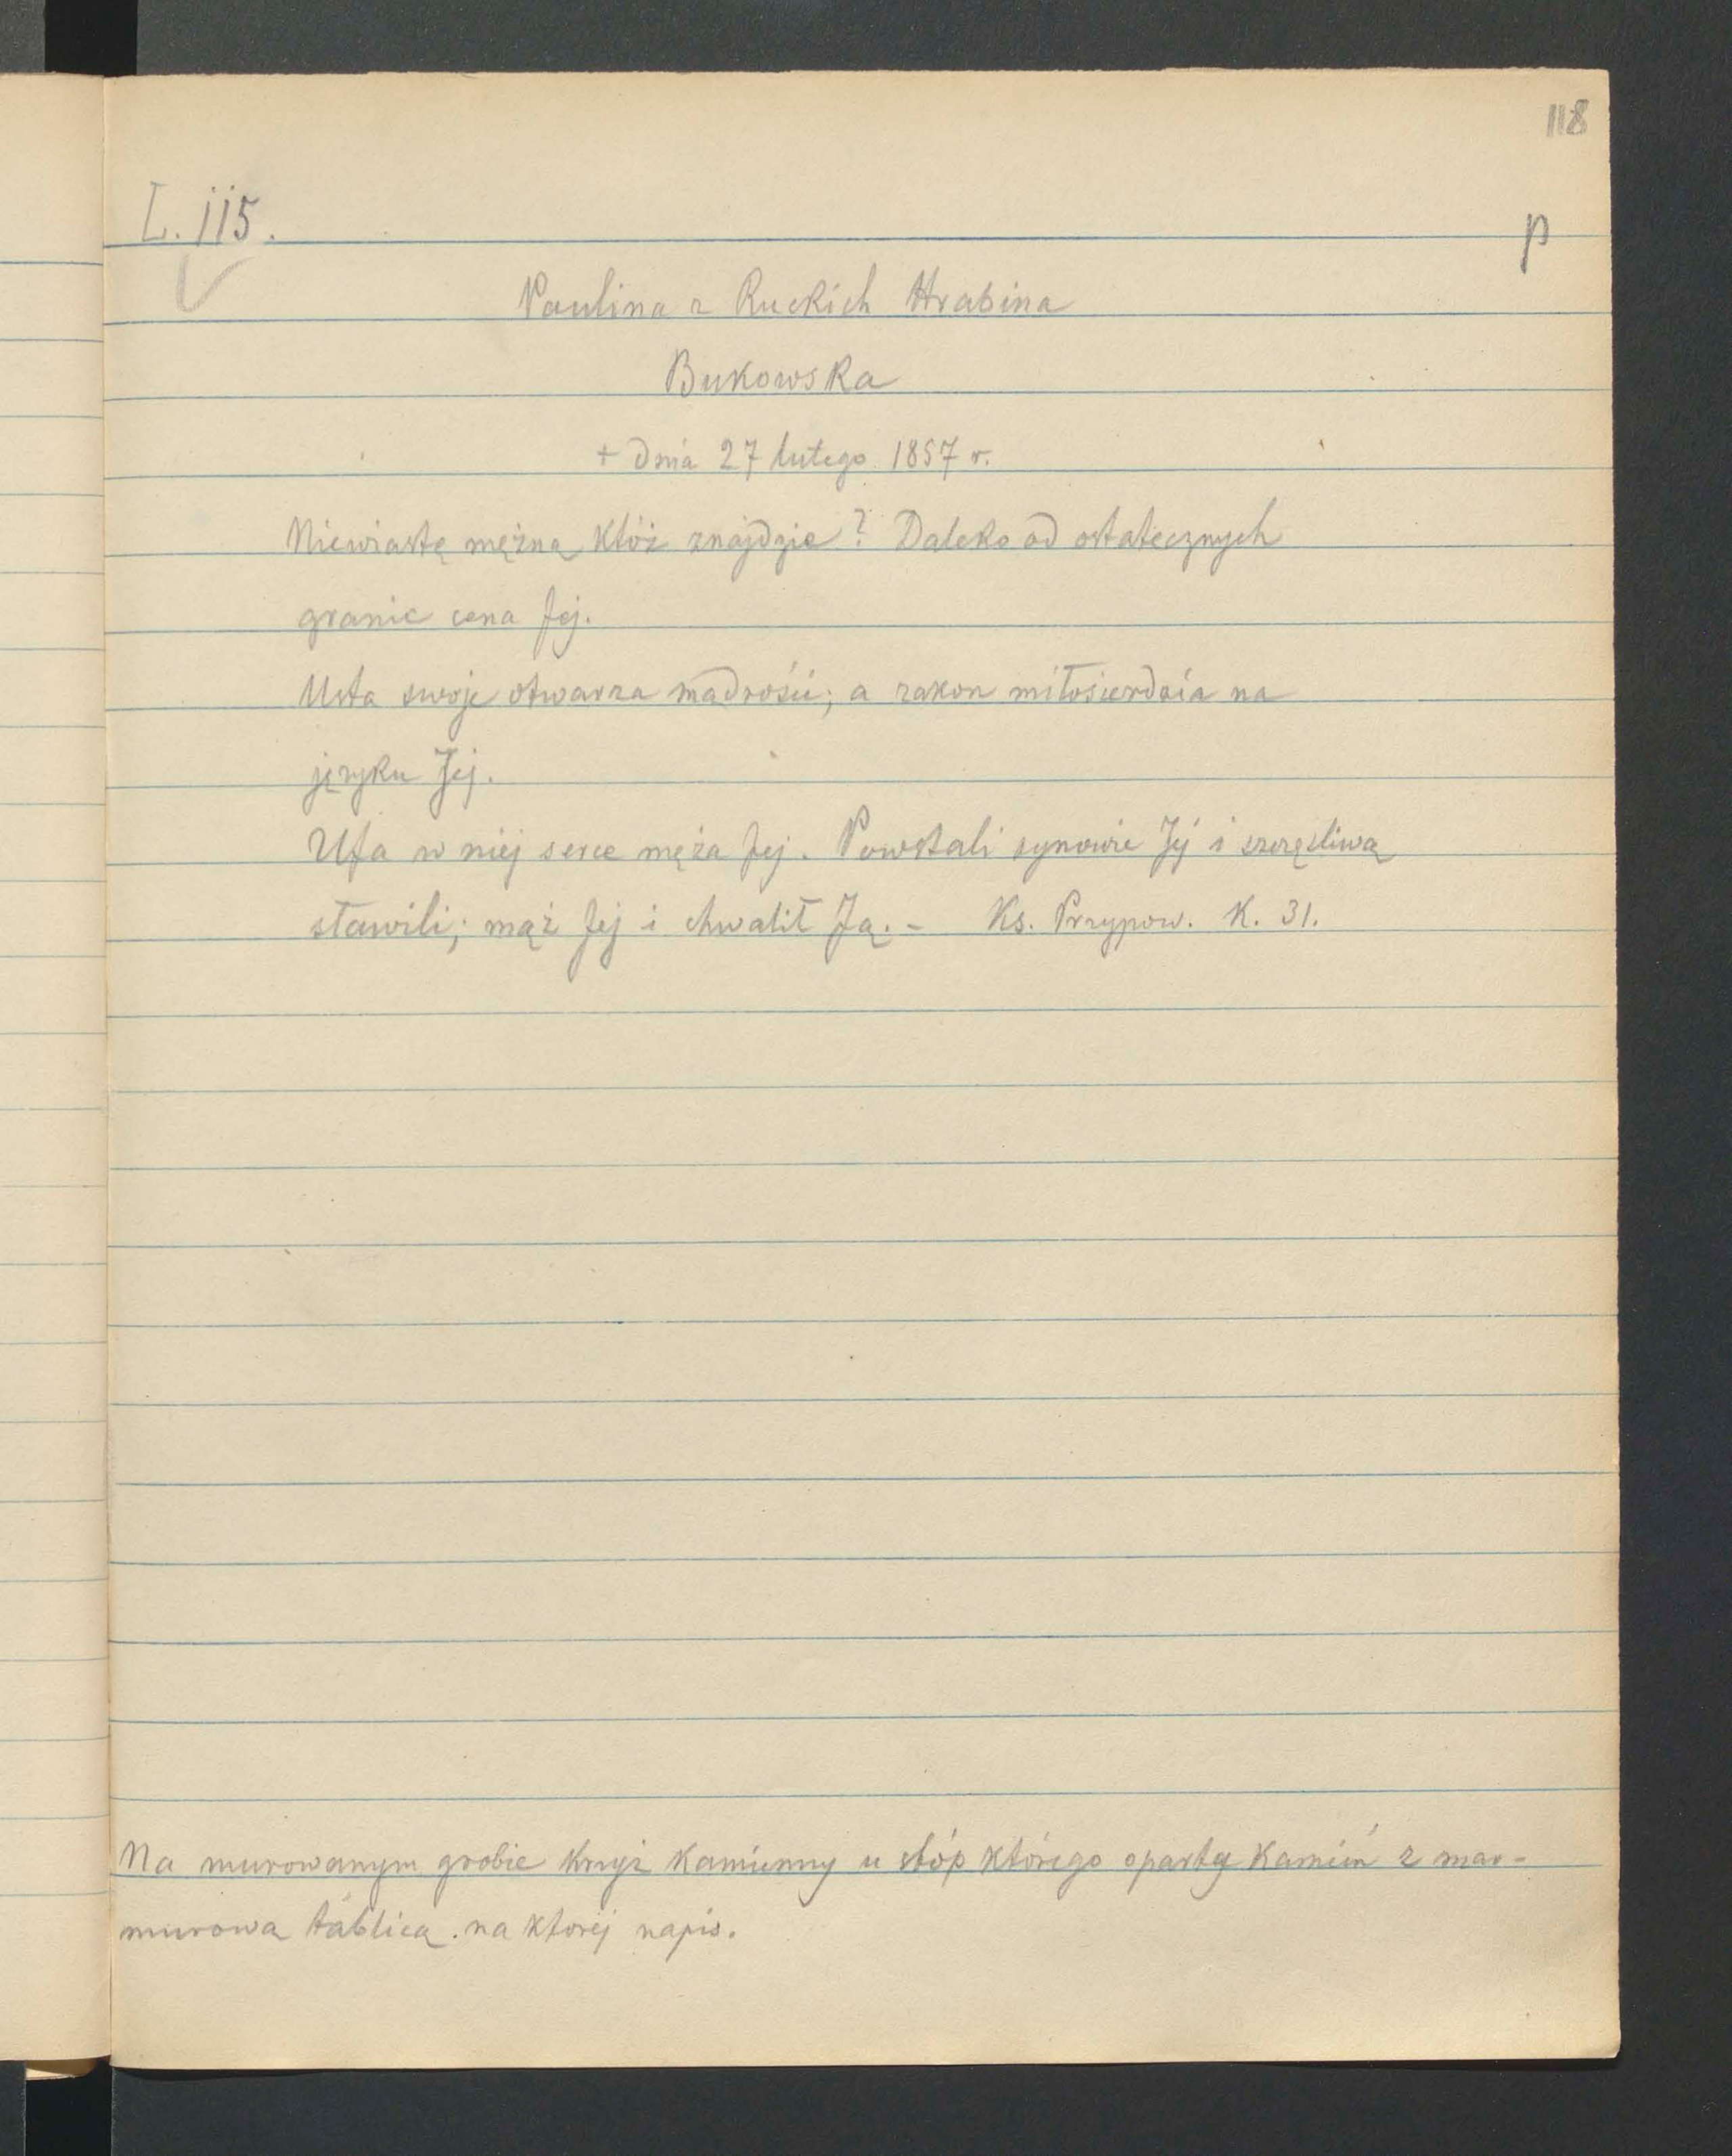 118
L. 115.
p
Paulina z Ruckich Hrabina
Bukowska
+ dnia 27 lutego 1857 r.
Niewiastę mężną któż znajdzie? Daleko od ostatecznych
granic cena Jej.
Usta swoje otwarza mądrości; a zakon miłosierdzia na
języku Jej.
Ufa w niej serce męża Jej. Powstali synowie Jej i szczęśliwą
sławili; mąż Jej i chwalił Ją. - Ks. Przypow. K. 31.
Na murowanym grobie krzyż kamienny u stóp którego oparty kamień z mar-
murową tablicą na której napis.